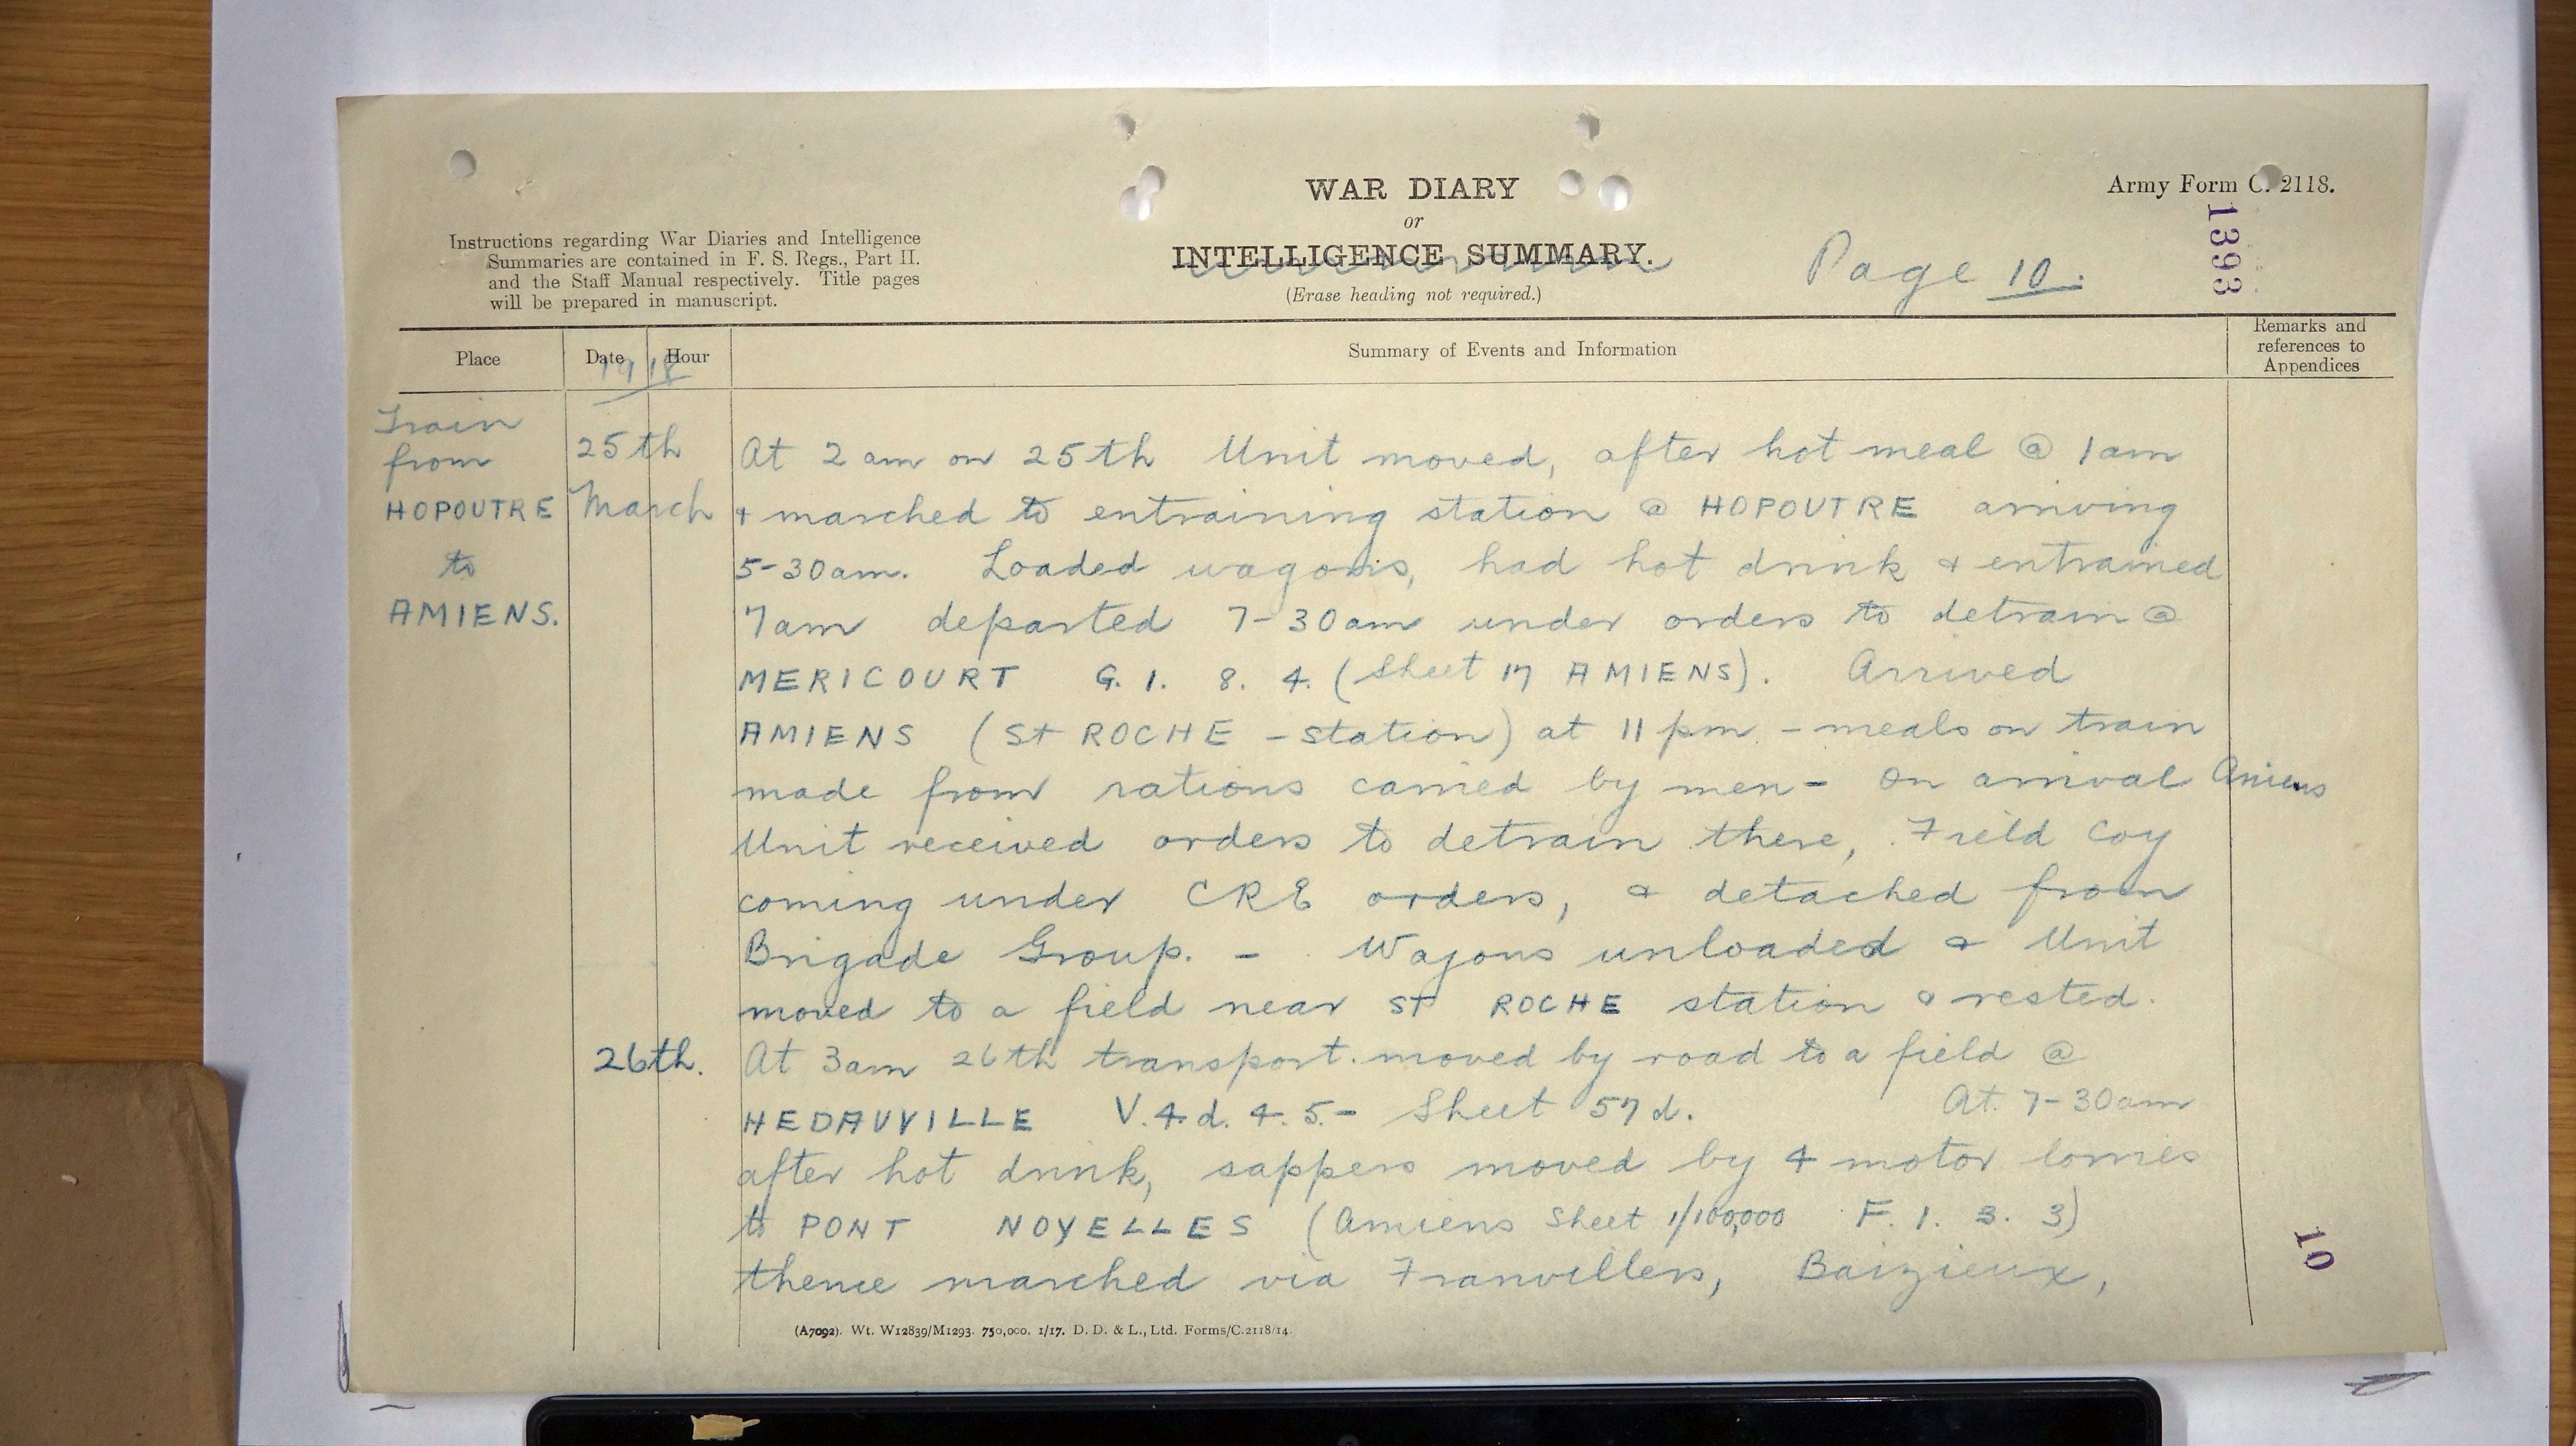 WAR DIARY
or
INTELLIGENCE SUMMARY.
(Erase heading not required.)
Army Form C. 2118.
Instructions regarding War Diaries and Intelligence
Summaries are contained in F. S. Regs., Part II.
and the Staff Manual respectively. Title pages
will be prepared in manuscript.
Page 10.
1393
Place
Date
Hour
1918
Summary of Events and Information
Remarks and
references to
Appendices
Train
from
HOPOUTRE
to
AMIENS.
25th
March
At 2 am on 25th Unit moved, after hot meal @ 1am
& marched to entraining station @ HOPOUTRE arriving
5-30am. Loaded wagons, had hot drink & entrained
7am departed 7-30am under orders to detrain @
MERICOURT G. 1. 8. 4. (Sheet 17 AMIENS). Arrived
AMIENS (St ROCHE - station) at 11 pm - meals on train
made from rations carried by men - On arrival Amiens
Unit received orders to detrain there, Field Coy
coming under CRE orders, & detached from
Brigade Group. - Wagons unloaded & Unit
moved to a field near ST ROCHE station & rested.
26th.
At 3am 26th transport moved by road to a field @
HEDAUVILLE V.4.d. 4. 5. - Sheet 57d. At 7-30am
after hot drink, sappers moved by 4 motor lorries
to PONT NOYELLES (Amiens Sheet 1/100,000 F. 1. 3. 3)
thence marched via Franvillers, Baizieux,
10
(A7092). Wt. W12839/M1293. 750,000. 1/17. D. D. & L., Ltd. Forms/C.2118/14.